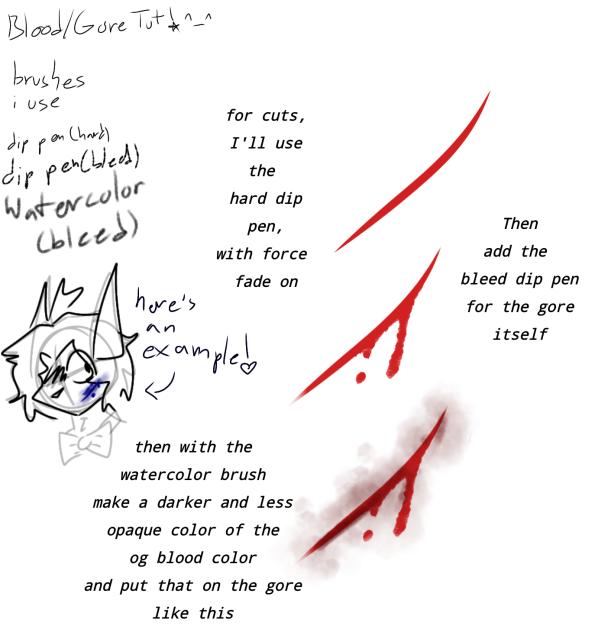 Blood/Gore Tut! ^_^
brushes
i use
dip pen(hard)
dip pen(bleed)
Watercolor
(bleed)
for cuts,
I'll use
the
hard dip
pen,
with force
fade on
Then
add the
bleed dip pen
for the gore
itself
here's
an
example!
then with the
watercolor brush
make a darker and less
opaque color of the
og blood color
and put that on the gore
like this